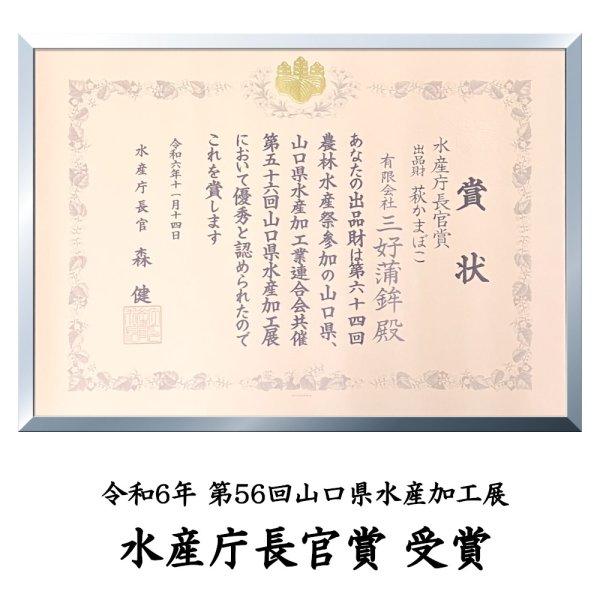 賞状
水産庁長官賞
出品財 萩かまぼこ
有限会社 三好蒲鉾 殿
あなたの出品財は第六十四回
農林水産祭参加の山口県、
山口県水産加工業連合会共催
第五十六回山口県水産加工展
において優秀と認められたので
これを賞します
令和六年十一月十四日
水産庁長官 森 健
令和6年 第56回山口県水産加工展
水産庁長官賞 受賞